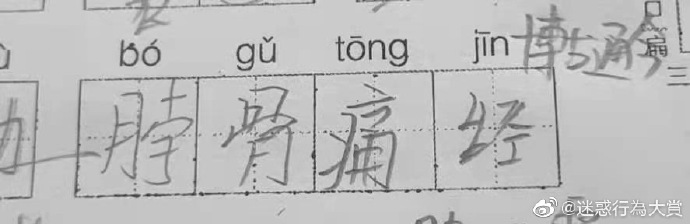 bó gǔ tōng jīn 博古通今
脖骨痛经
三
@迷惑行為大赏